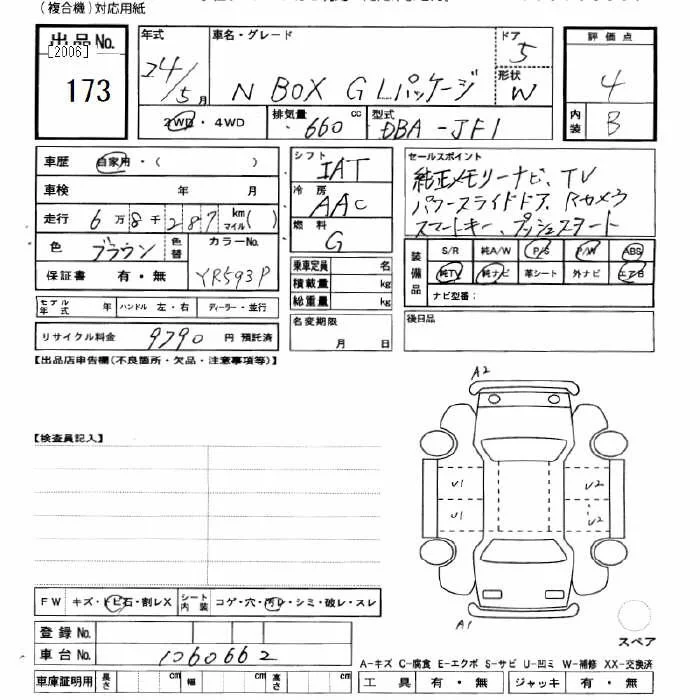 (複合機)対応用紙
出品No. 年式 車名・グレード ドア 評価点
[2006] 24/5月 N BOX G Lパッケージ 5 4
173 形状 W 内装 B
2WD・4WD 排気量 660 cc 型式 DBA-JF1
車歴 自家用・( )
シフト IAT
セールスポイント
車検 年 月
冷房 AAC
純正メモリーナビ、TV
走行 6万8千287 km マイル( )
パワースライドドア、Rカメラ
燃料 G
スマートキー、プッシュスタート
色 ブラウン 色替 カラーNo.
保証書 有・無 YR593P
乗車定員 名
積載量 kg
総重量 kg
装備品 S/R 純A/W P/S P/W ABS
純TV 純ナビ 革シート 外ナビ エアB
ナビ型番:
モデル年式 年 ハンドル 左・右 ディーラー・並行
名変期限 月 日
後日品
リサイクル料金 9790 円 預託済
【出品店申告欄(不良箇所・欠品・注意事項等)】
A2
【検査員記入】
U1 U2
U1 U2
FW キズ・トビ石・割レX シート内装 コゲ・穴・汚レ・シミ・破レ・スレ
A1
登録No.
スペア
車台No. 1060662
A-キズ C-腐食 E-エクボ S-サビ U-凹ミ W-補修 XX-交換済
車庫証明用 長さ cm 幅 cm 高さ cm 工具 有・無 ジャッキ 有・無